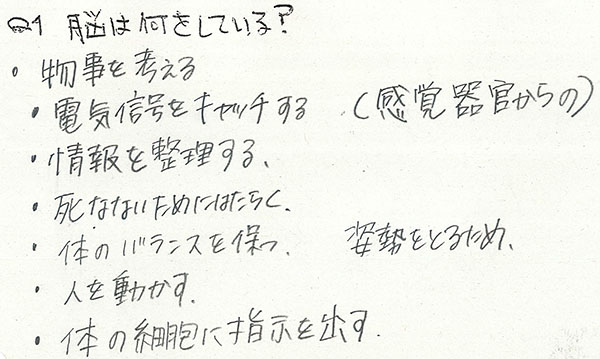 Q1 脳は何をしている?
・物事を考える
・電気信号をキャッチする (感覚器官からの)
・情報を整理する、
・死なないためにはたらく、
・体のバランスを保つ、 姿勢をとるため、
・人を動かす.
・体の細胞に指示を出す.